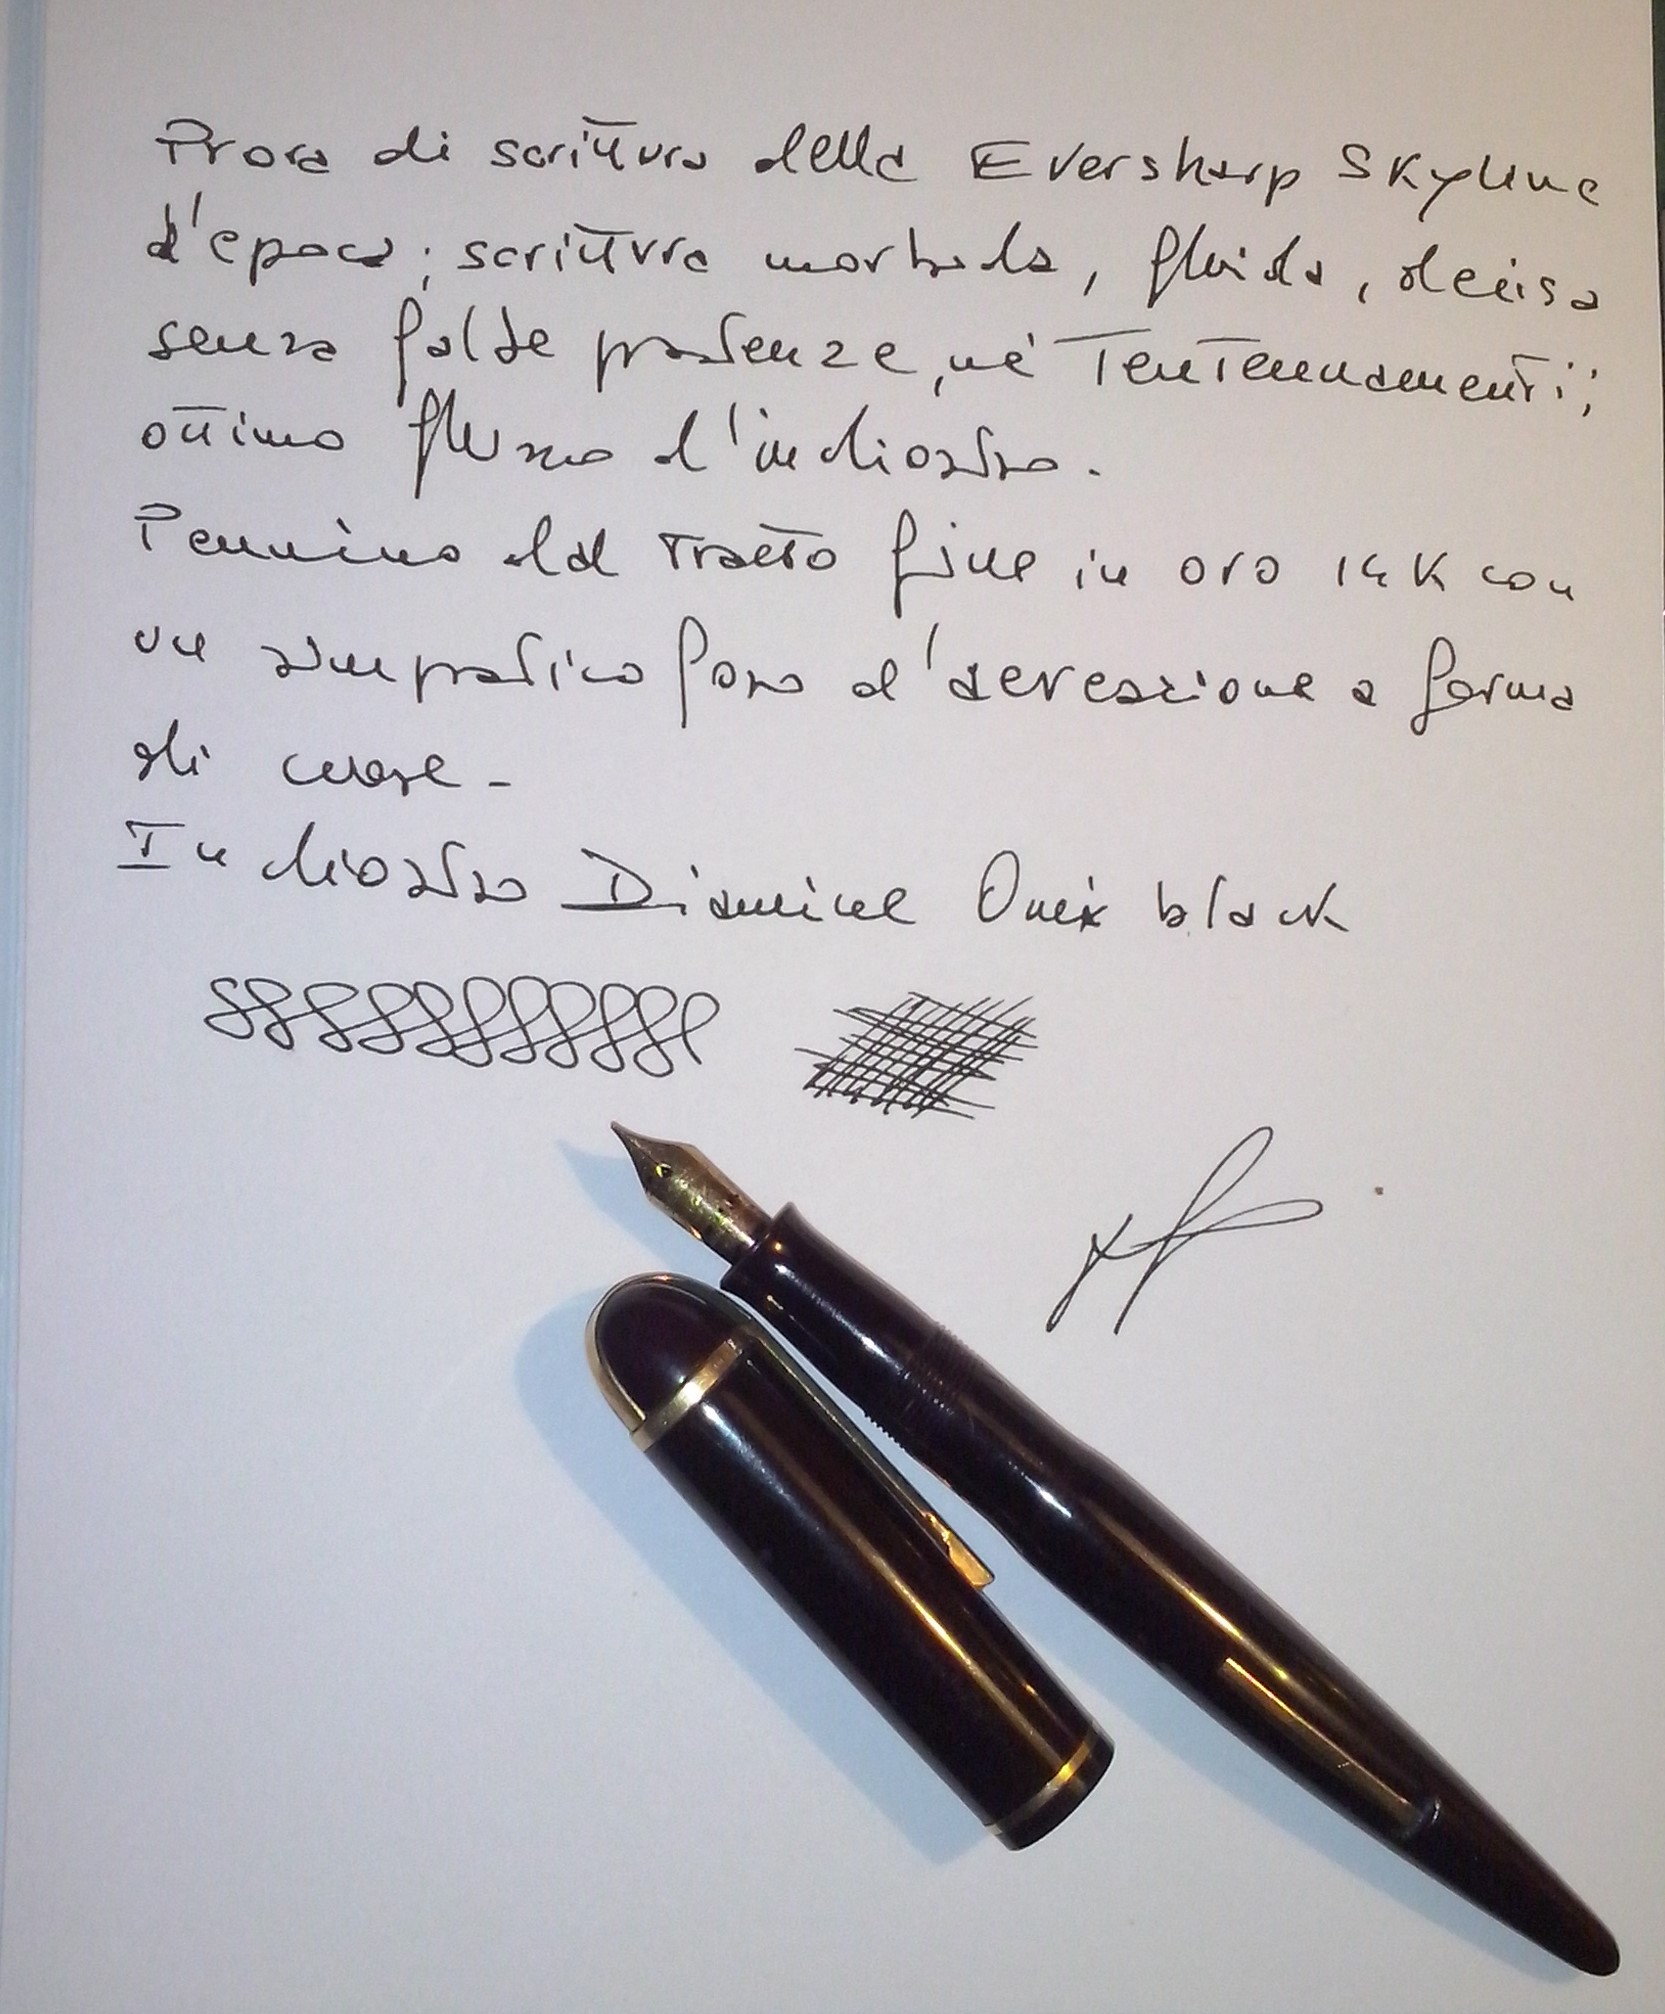 Prova di scrittura della Eversharp Skyline
d'epoca; scrittura morbida, fluida, decisa
senza false partenze, né Tentennamenti;
ottimo flusso d'inchiostro.
Pennino dal Tratto fine in oro 14K con
un simpatico foro d'aereazione a forma
di cuore -
Inchiostro Diamine Onix black